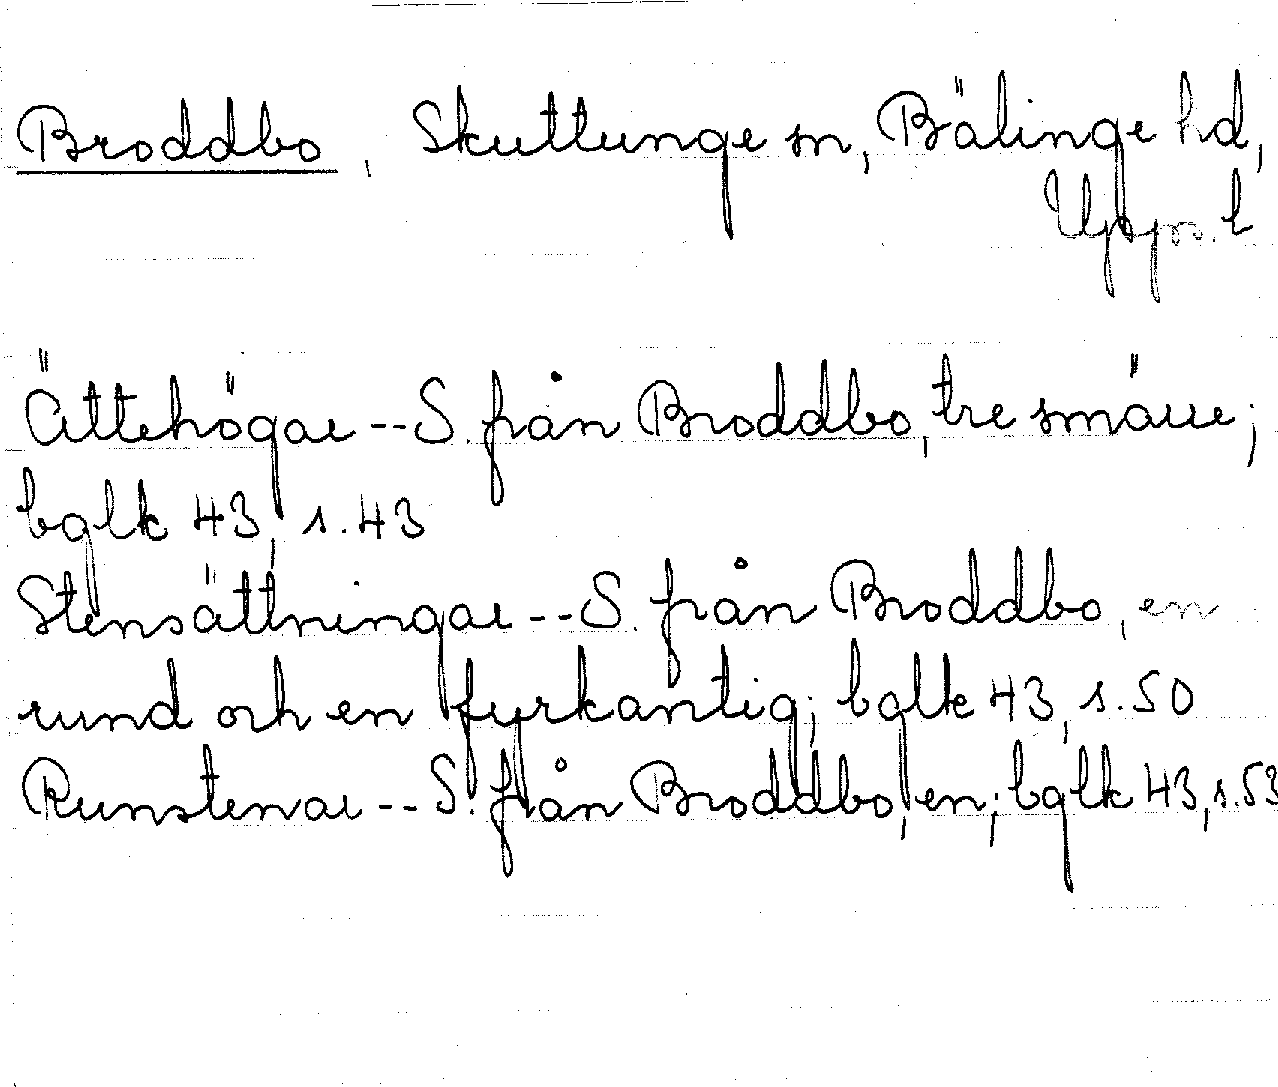 Broddbo, Skuttunge sn, Bälinge hd,
Upps. l
Ättehögar -- S. från Broddbo, tre smärre;
bglk 43, s. 43
Stensättningar -- S. från Broddbo, en
rund och en fyrkantig; bglk 43, s. 50
Runstenar -- S. från Broddbo, en; bglk 43, s. 53